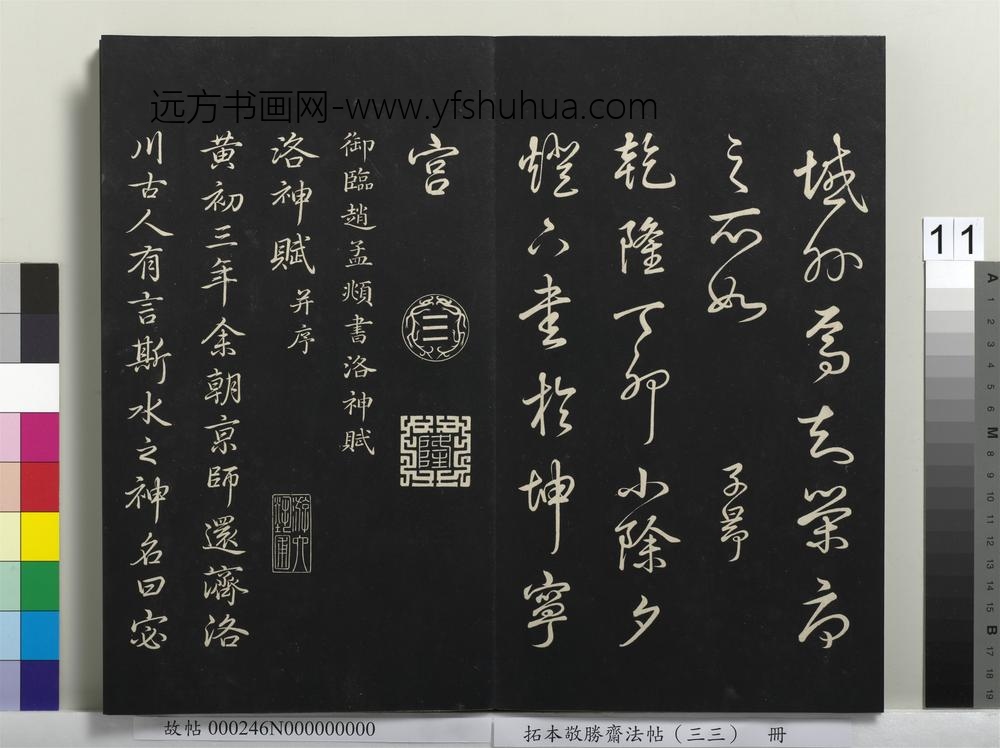 远方书画网-www.yfshuhua.com
域外焉知榮辱
之所如 子昂
乾隆丁卯小除夕
燈下書於坤寧
宮
隆
御臨趙孟頫書洛神賦
洛神賦并序
黄初三年余朝京師還濟洛
川古人有言斯水之神名曰宓
11
A 1 2 3 4 5 6 M 8 9 10 11 12 13 14 15 B 17 18 19
故帖 000246N000000000
拓本敬勝齋法帖(三三) 冊